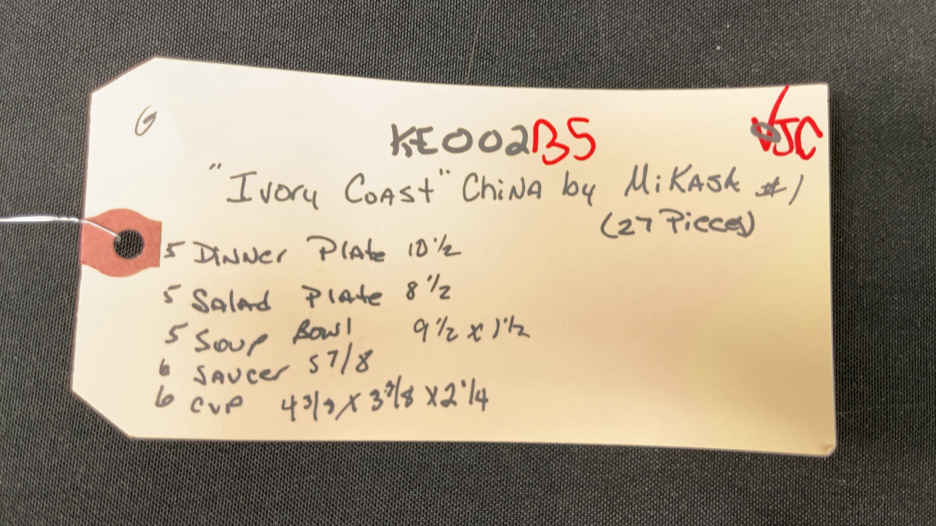 G
KE002BS
JC
"Ivory Coast" China by Mikasa #1
(27 Pieces)
5 Dinner Plate 10 1/2
5 Salad Plate 8 1/2
5 Soup Bowl 9 1/2 x 1 1/2
6 Saucer 5 7/8
6 Cup 4 3/8 x 3 3/8 x 2 1/4